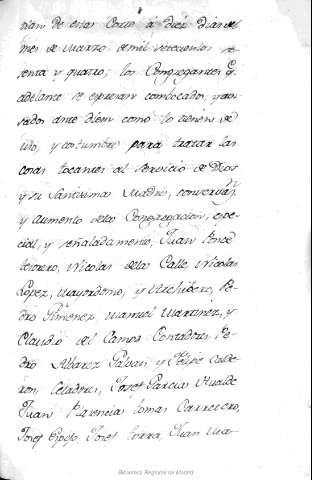 dias del
mes de Marzo de mil setecientos se
senta y quatro; los Congregantes q.
adelante se expresan combocados, y avi-
sados ante diem como lo tienen de
uso, y costumbre para tratar las
cosas tocantes al servicio de Dios
y su Santissima Madre, conservaz.n
y aumento de la Congregacion, espe-
cial, y señaladamente, Juan Ponce
tesorero, Nicolas de la Calle, Nicolas
Lopez, mayordomo, y Archibero, Pe-
dro Ximenez, Manuel Martinez, y
Claudio del Campo Contadores, Pe-
dro Albarez Palvan, y Felipe Calde-
ron, Celadores, Josef Garcia Hualde
Juan Plasencia tomas Carretero,
Josef Espejo, Josef torra, Juan Mar-
Biblioteca Regional de Madrid